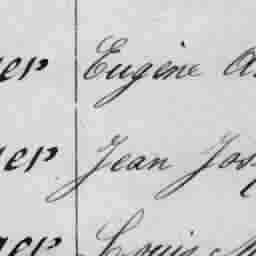 er Eugène A
er Jean Jos
er Louis M